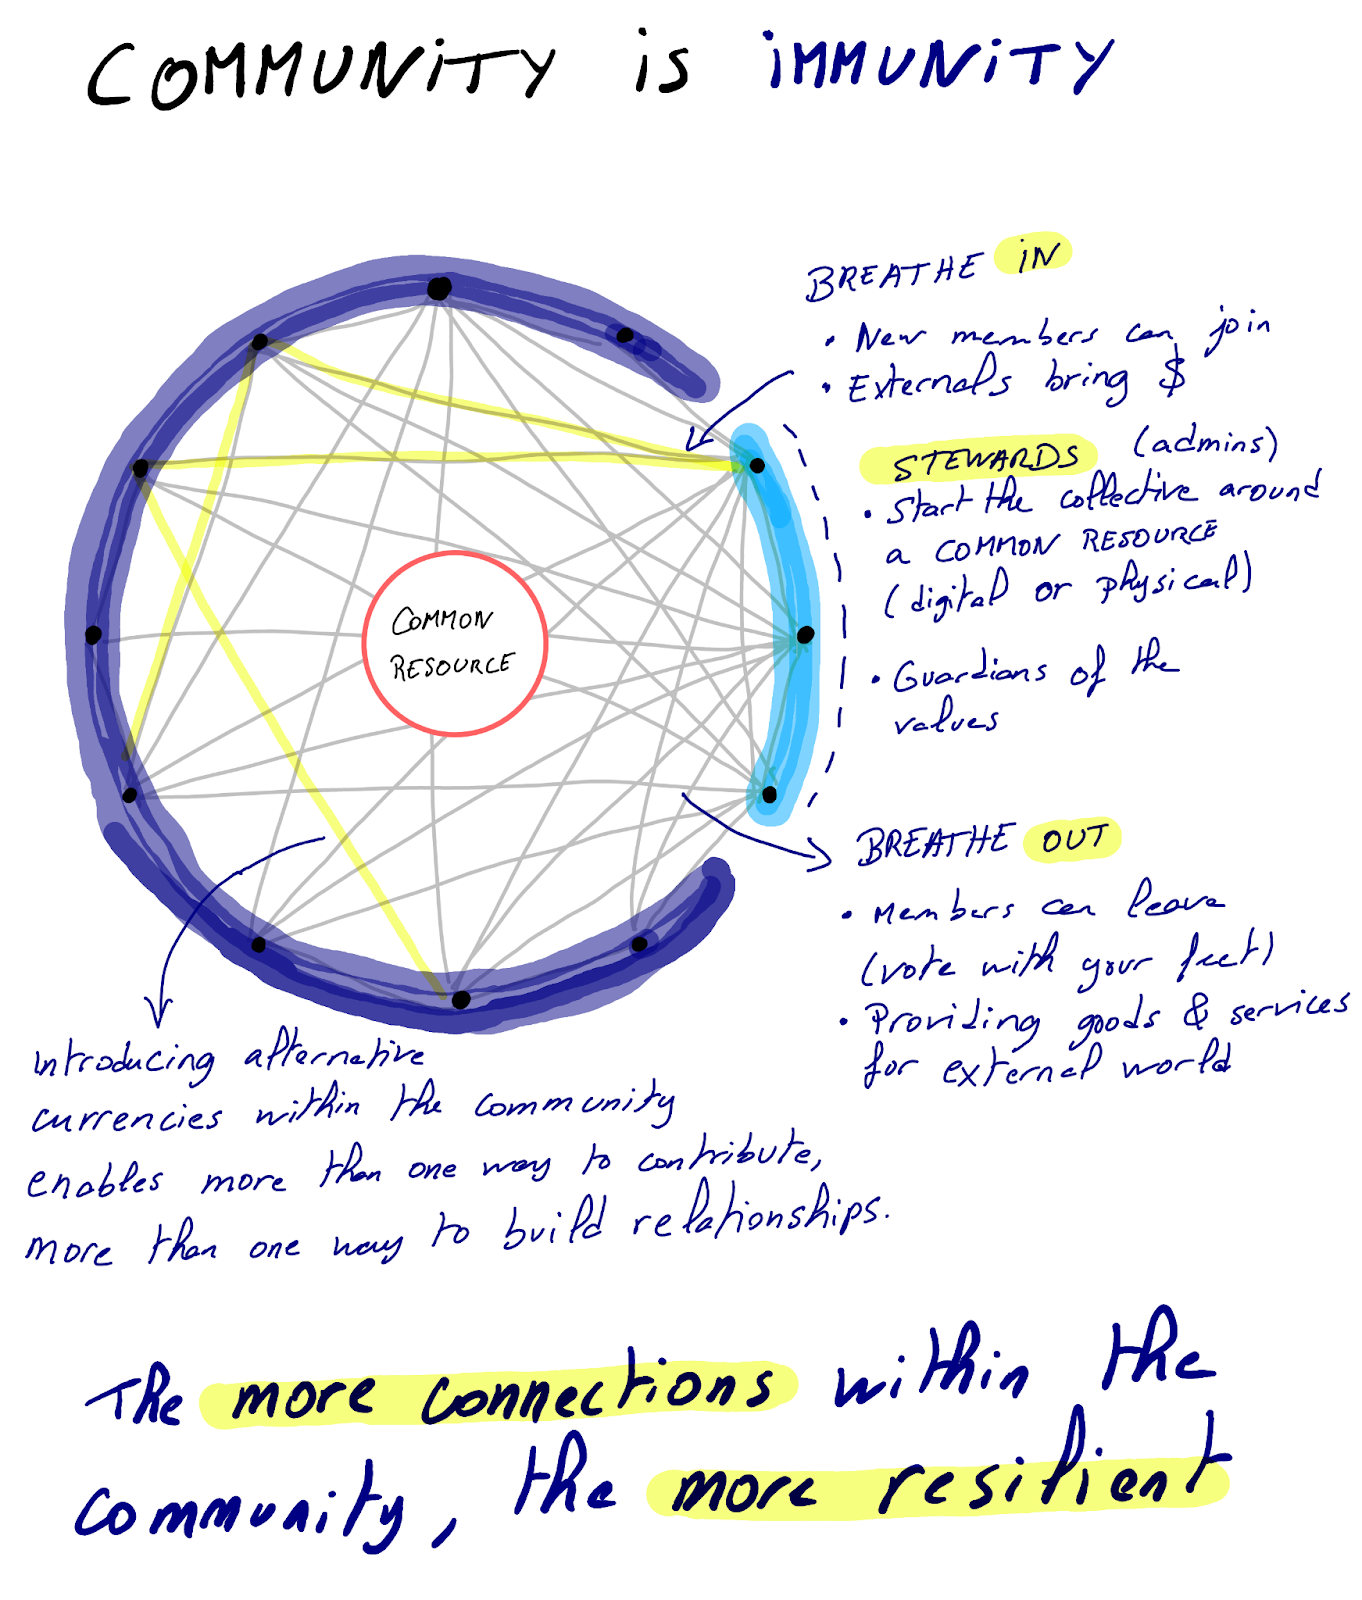 COMMUNiTY iS iMMUNiTY
BREATHE iN
• New members can join
• Externals bring $
STEWARDS (admins)
• Start the collective around
a COMMON RESOURCE
(digital or physical)
• Guardians of the
values
COMMON
RESOURCE
BREATHE OUT
• Members can leave
(vote with your feet)
• Providing goods & services
for external world
Introducing alternative
currencies within the community
enables more than one way to contribute,
more than one way to build relationships.
The more connections within the
community, the more resilient